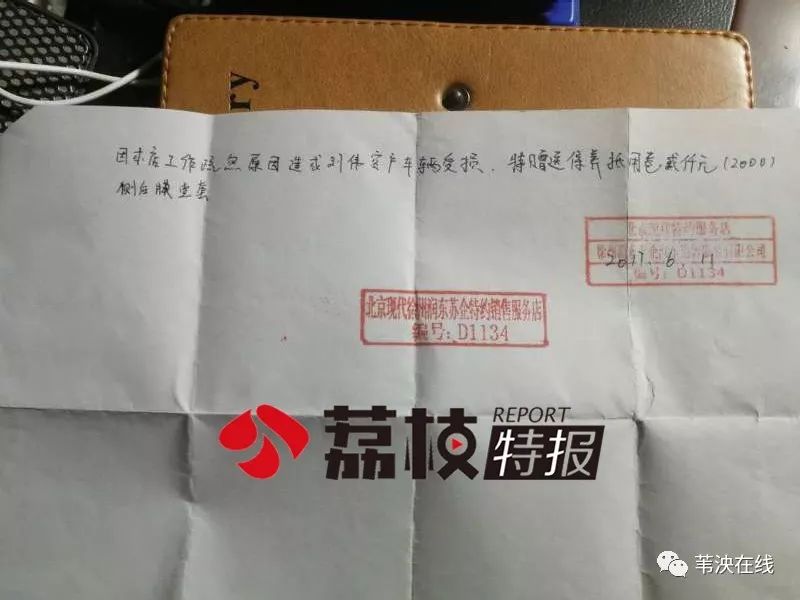 ry
因本店工作疏忽原因造成刘伟客户车辆受损．特赠送保养抵用卷贰仟元（2000）
侧后膜壹套
北京现代特约服务店
有限公司
编号：D1134
2017.6.11
北京现代徐州润东苏企特约销售服务店
编号：D1134
荔枝
REPORT
特报
苇泱在线